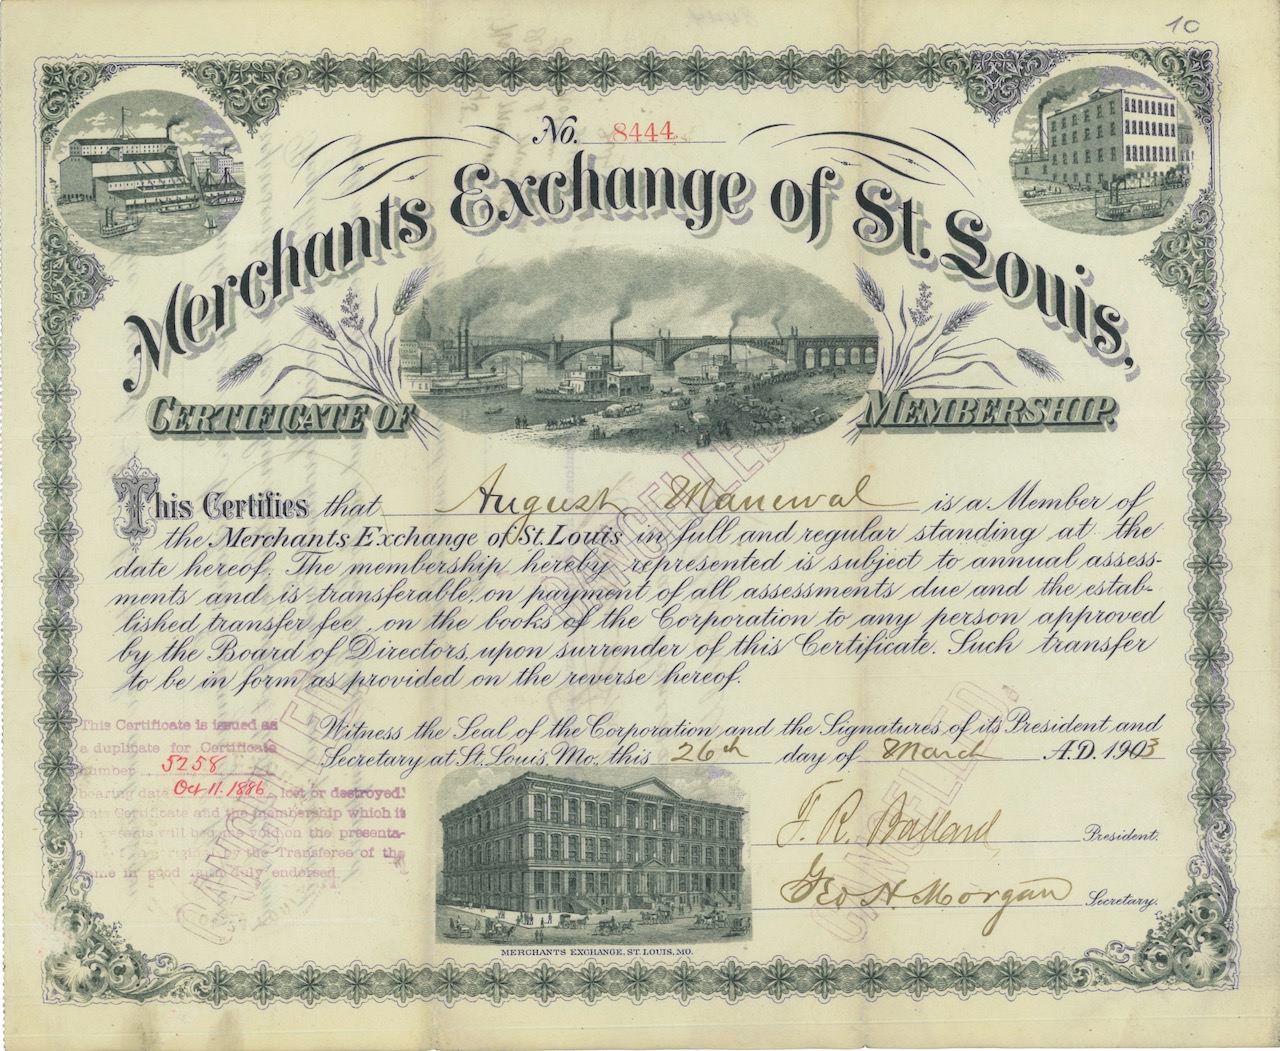 10
No. 8444
Merchants Exchange of St. Louis,
CERTIFICATE OF MEMBERSHIP.
This Certifies that August Manewal is a Member of
the Merchants Exchange of St. Louis in full and regular standing at the
date hereof. The membership hereby represented is subject to annual assess-
ments and is transferable, on payment of all assessments due and the estab-
lished transfer fee, on the books of the Corporation to any person approved
by the Board of Directors, upon surrender of this Certificate. Such transfer
to be in form as provided on the reverse hereof.
Witness the Seal of the Corporation and the Signatures of its President and
Secretary at St. Louis, Mo, this 26th day of March A.D. 1903
This Certificate is issued as
a duplicate for Certificate
number 5258
bearing date Oct 11. 1886, lost or destroyed.
Certificate and the membership which it
will void on the presenta-
by the Transferee of the
in good duly endorsed.
F. R. Ballard President.
Geo H Morgan Secretary.
MERCHANTS EXCHANGE, ST. LOUIS, MO.
CANCELLED
CANCELLED
CANCELLED